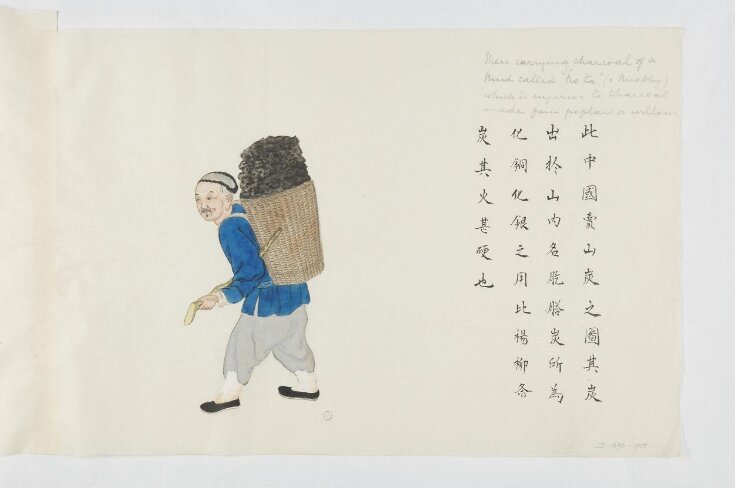 Men carrying charcoal of a
kind called "Ko ta" (or Knobby)
which is superior to charcoal
made from poplars or willows
此中國賣山炭之圖其炭
出於山內名肐膪炭所為
化銅化銀之用比楊柳条
炭其火甚硬也